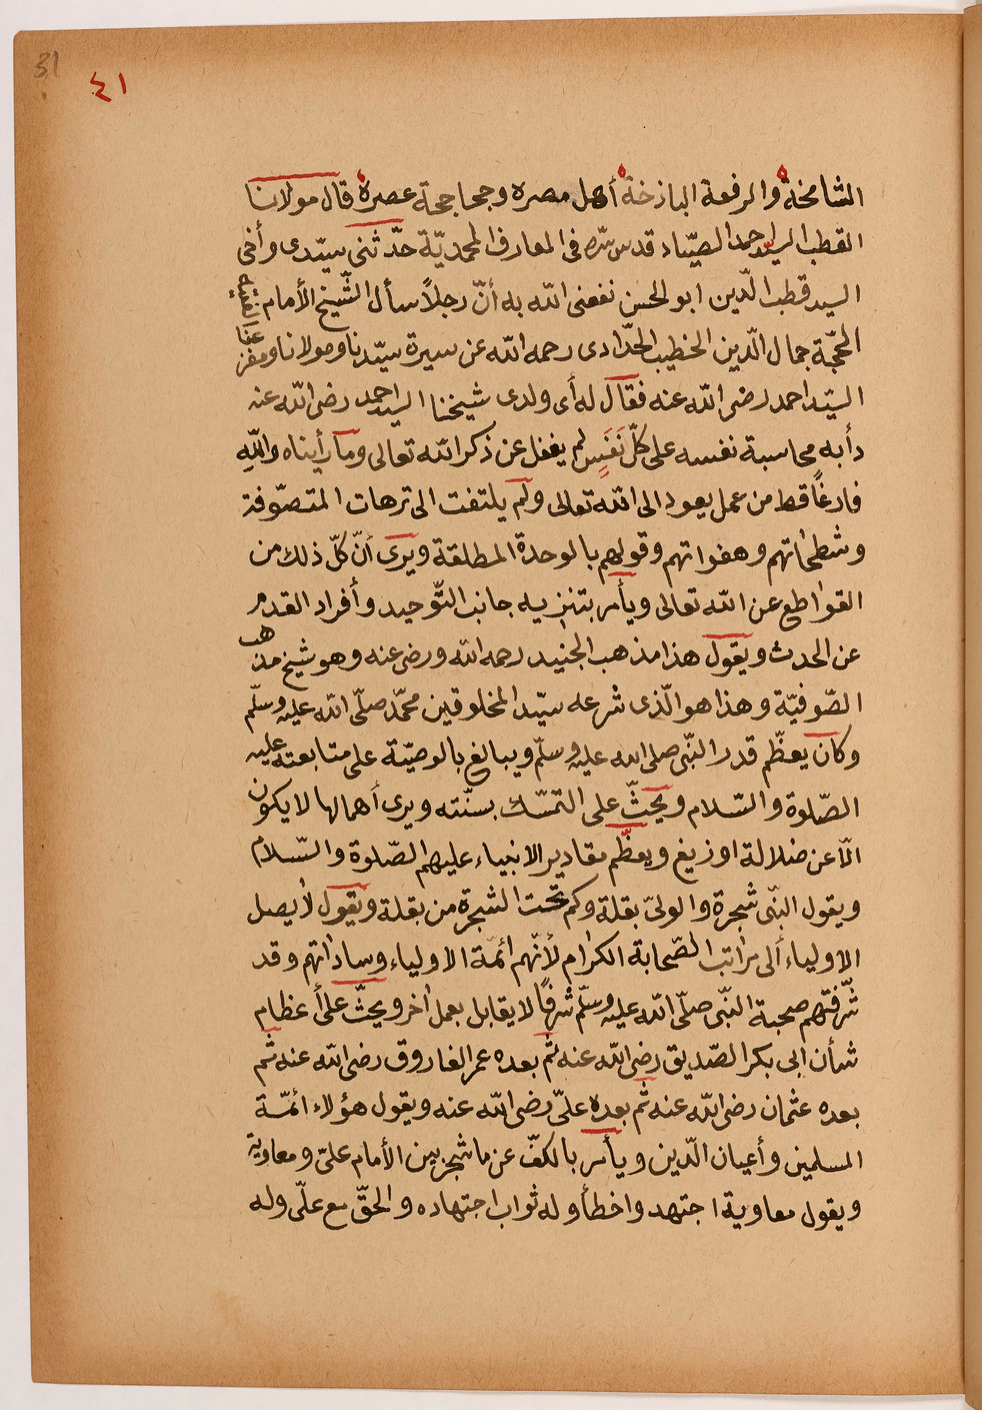 31
٤١
الشامخة والرفعة الباذخة أهل مصره وججاججة عصره قال مولانا
القطب السيد احمد الصيّاد قدس سّره فى المعارف المحمديّة حدّثنى سيّدى وأخى
السيد قطب الّدين ابو الحسن نفعنى اللّه به أنّ رجلاً سأل الشّيخ الأمام
الحجّة جمال الّدين الخطيب الحدّادى رحمه اللّه عن سيرة سيّدنا ومولانا ومفزعنا
السيّد احمد رضى اللّه عنه فقال له أى ولدى شيخنا السيد احمد رضى اللّه عنه
دأبه محاسبة نفسه على كلّ نَفَسٍ لم يغفل عن ذكر اللّه تعالى وما رأيناه واللّهِ
فارغاً قط من عمل يعود الى اللّه تعالى ولم يلتفت الى ترهات المتصوّفة
وشطحٰاتهم وهفواتهم وقولهم بالوحدة المطلقة ويرى أنّ كلّ ذلك من
القوٰاطع عن اللّه تعالى ويأمر بتنزيه جانب التّوحيد وأفراد القدم
عن الحدث ويقول هذا مذهب الجنيد رحمه اللّه ورضى عنه وهو شيخ مذهب
الصّوفيّة وهذا هو الّذى شرعه سيّد المخلوقين محمّد صلّى اللّه عليه وسلّم
وكان يعظّم قدر النّبى صلى اللّه عليه وسلّم ويبالغ بالوصيّة على متابعته عليه
الصّلوة والسّلام ويحثّ على التمسّك بسنّته ويرى أهمالها لا يكون
الّا عن ضلالة او زيغ ويعظّم مقادير الانبياء عليهم الصّلوة والسّلام
ويقول النّبى شجرة والولىّ بقلة وكم تحت الشجرة من بقلة ويقول لا يصل
الاولياء ألى مرٰاتب الصّحابة الكرٰام لأنّهم ائمّة الاولياء وسادٰاتهم وقد
شّرفتهم صحبة النّبى صلّى اللّه عليه وسلّم شرفاً لا يقابل بعمل أخر ويحثّ على أعظام
شأن ابى بكر الصّديق رضى اللّه عنه ثم بعده عمر الفاروق رضى اللّه عنه ثم
بعده عثمان رضى اللّه عنه ثم بعده علىّ رضى اللّه عنه ويقول هؤلاء ائمّة
المسلمين وأعيان الّدين ويأمر بالكفّ عن ما شجر بين الأمام علىّ ومعاوية
ويقول معاوية اجتهد واخطأ وله ثواب اجتهاده والحقّ مع علّى وله